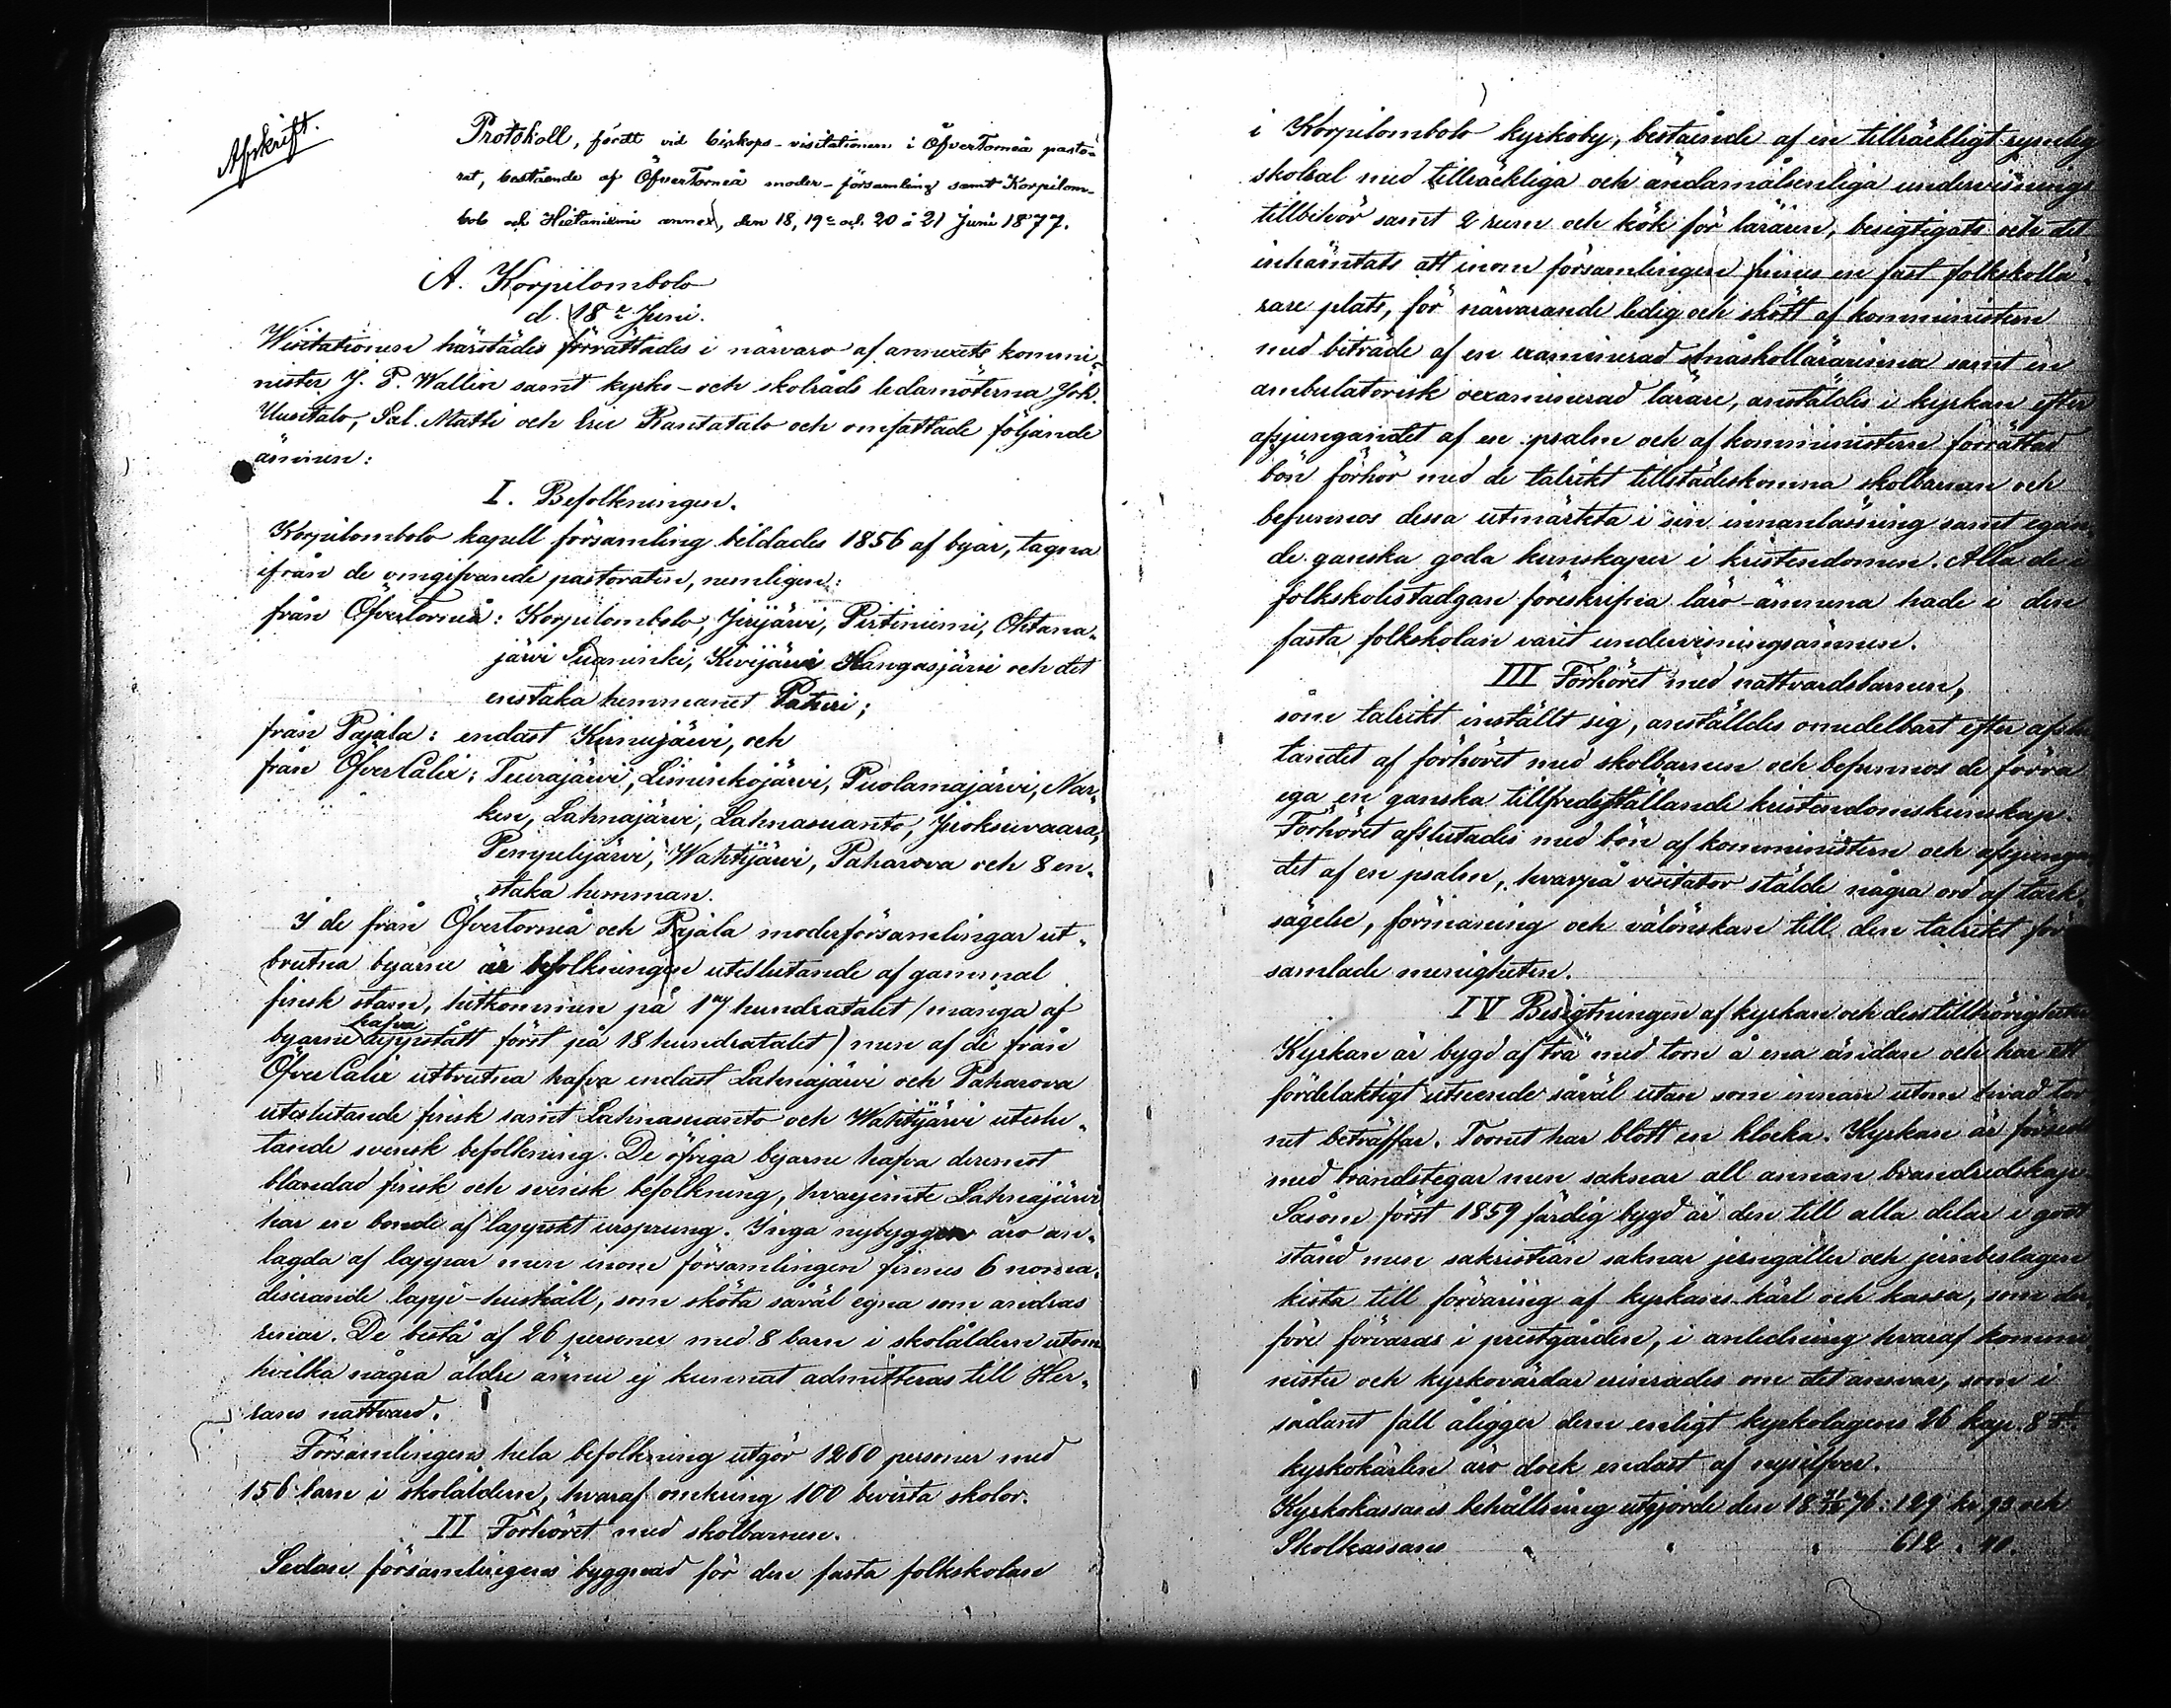 Afskrift.
Protokoll, fördt vid biskops-visitationen i ÖfverTorneå pasto-
rat, bestående af ÖfverTorneå moder-församling samt Korpilom-
bolo och Hietaniemi annex, den 18, 19 och 20 à 21 Juni 1877.
A. Korpilombolo
d. 18e Juni.
Visitationen härstädes förrättades i närvaro af annexets kommi-
nister J. P. Wallin samt kyrko- och skolråds ledamöterna Joh.
Uusitalo, Sal. Matti och Eric Rantatalo och omfattade följande
ämnen:
I. Befolkningen.
Korpilombolo kapell församling bildades 1856 af byar, tagna
ifrån de omgifvande pastoraten, nemligen:
från Öfvertorneå: Korpilombolo, Jirijärvi, Pirtiniemi, Ohtana-
järvi Suaninki, Kivijärvi Kangasjärvi och det
enstaka hemmanet Pateri;
från Pajala: endast Kirnujärvi, och
från ÖfverCalix: Teurajärvi, Liminkojärvi, Puolamajärvi, Nar-
ken, Lahnajärvi, Lahnasuanto, Juoksuvaara,
Pempelijärvi, Wahtijärvi, Paharova och 8 en-
staka hemman.
I de från Öfvertorneå och Pajala moderförsamlingar ut-
brutna byarne är befolkningen uteslutande af gammal
finsk stam, hitkommen på 17 hundratalet (många af
byarne hafva uppstått först på 18 hundratalet) men af de från
ÖfverCalix utbrutna hafva endast Lahnajärvi och Paharova
uteslutande finsk samt Lahnasuanto och Wahtijärvi uteslu-
tande svensk befolkning. De öfriga byarne hafva deremot
blandad finsk och svensk befolkning, hvarjemte Lahnajärvi
har en bonde af lappskt ursprung. Inga nybyggen äro an-
lagda af lappar men inom församlingen finnes 6 noma-
diserande lapp-hushåll, som sköta såväl egna som andras
renar. De bestå af 26 personer med 8 barn i skolåldern utom
hvilka några äldre ännu ej kunnat admitteras till Her-
rans nattvard.
Församlingens hela befolkning utgör 1260 personer med
156 barn i skolåldern, hvaraf omkring 100 bevista skolor.
II Förhöret med skolbarnen.
Sedan församlingens byggnad för den fasta folkskolan
i Korpilombolo kyrkoby, bestående af en tillräckligt rymlig
skolsal med tillräckliga och ändamålsenliga undervisnings
tillbehör samt 2 rum och kök för läraren, besigtigats och det
inhämtats att inom församlingen finnes en fast folkskollä-
rare plats, för närvarande ledig och skött af komministern
med biträde af en examinerad småskollärarinna samt en
ambulatorisk oexaminerad lärare, anställdes i kyrkan efter
afsjungandet af en psalm och af komministern förrättad
bön förhör med de talrikt tillstädeskomna skolbarnen och
befunnos dessa utmärkta i sin innanläsning samt egan-
de ganska goda kunskaper i kristendomen. Alla de i
folkskolestadgan föreskrifna läro-ämnena hade i den
fasta folkskolan varit undervisningsämnen.
III Förhöret med nattvardsbarnen,
som talrikt inställt sig, anställdes omedelbart efter afslu
tandet af förhöret med skolbarnen och befunnos de förra
ega en ganska tillfredsställande kristendomskunskap.
Förhöret afslutades med bön af komministern och afsjungan
det af en psalm, hvarpå visitator stälde några ord af tack-
sägelse, förmaning och välönskan till den talrikt för
samlade menigheten.
IV Besigtningen af kyrkan och dess tillhörigheter
Kyrkan är bygd af trä med torn å ena ändan och har ett
fördelaktigt utseende såväl utan som innan utom hvad tor
net beträffar. Tornet har blott en klocka. Kyrkan är försedd
med brandstegar men saknar all annan brandredskap.
Såsom först 1859 färdig bygd är den till alla delar i godt
stånd men sakristian saknar jerngaller och jernbeslagen
kista till förvaring af kyrkans kärl och kassa, som der-
före förvaras i prestgården, i anledning hvaraf kommi
nister och kyrkovärdar erinrades om det ansvar, som i
sådant fall åligger dem enligt kyrkolagens 26 kap. 8 §.
kyrkokärlen äro dock endast af nysilfver.
Kyrkokassans behållning utgjorde den 18 31/12 76: 129 kr 93 och
Skolkassans " " " 612 " 40.